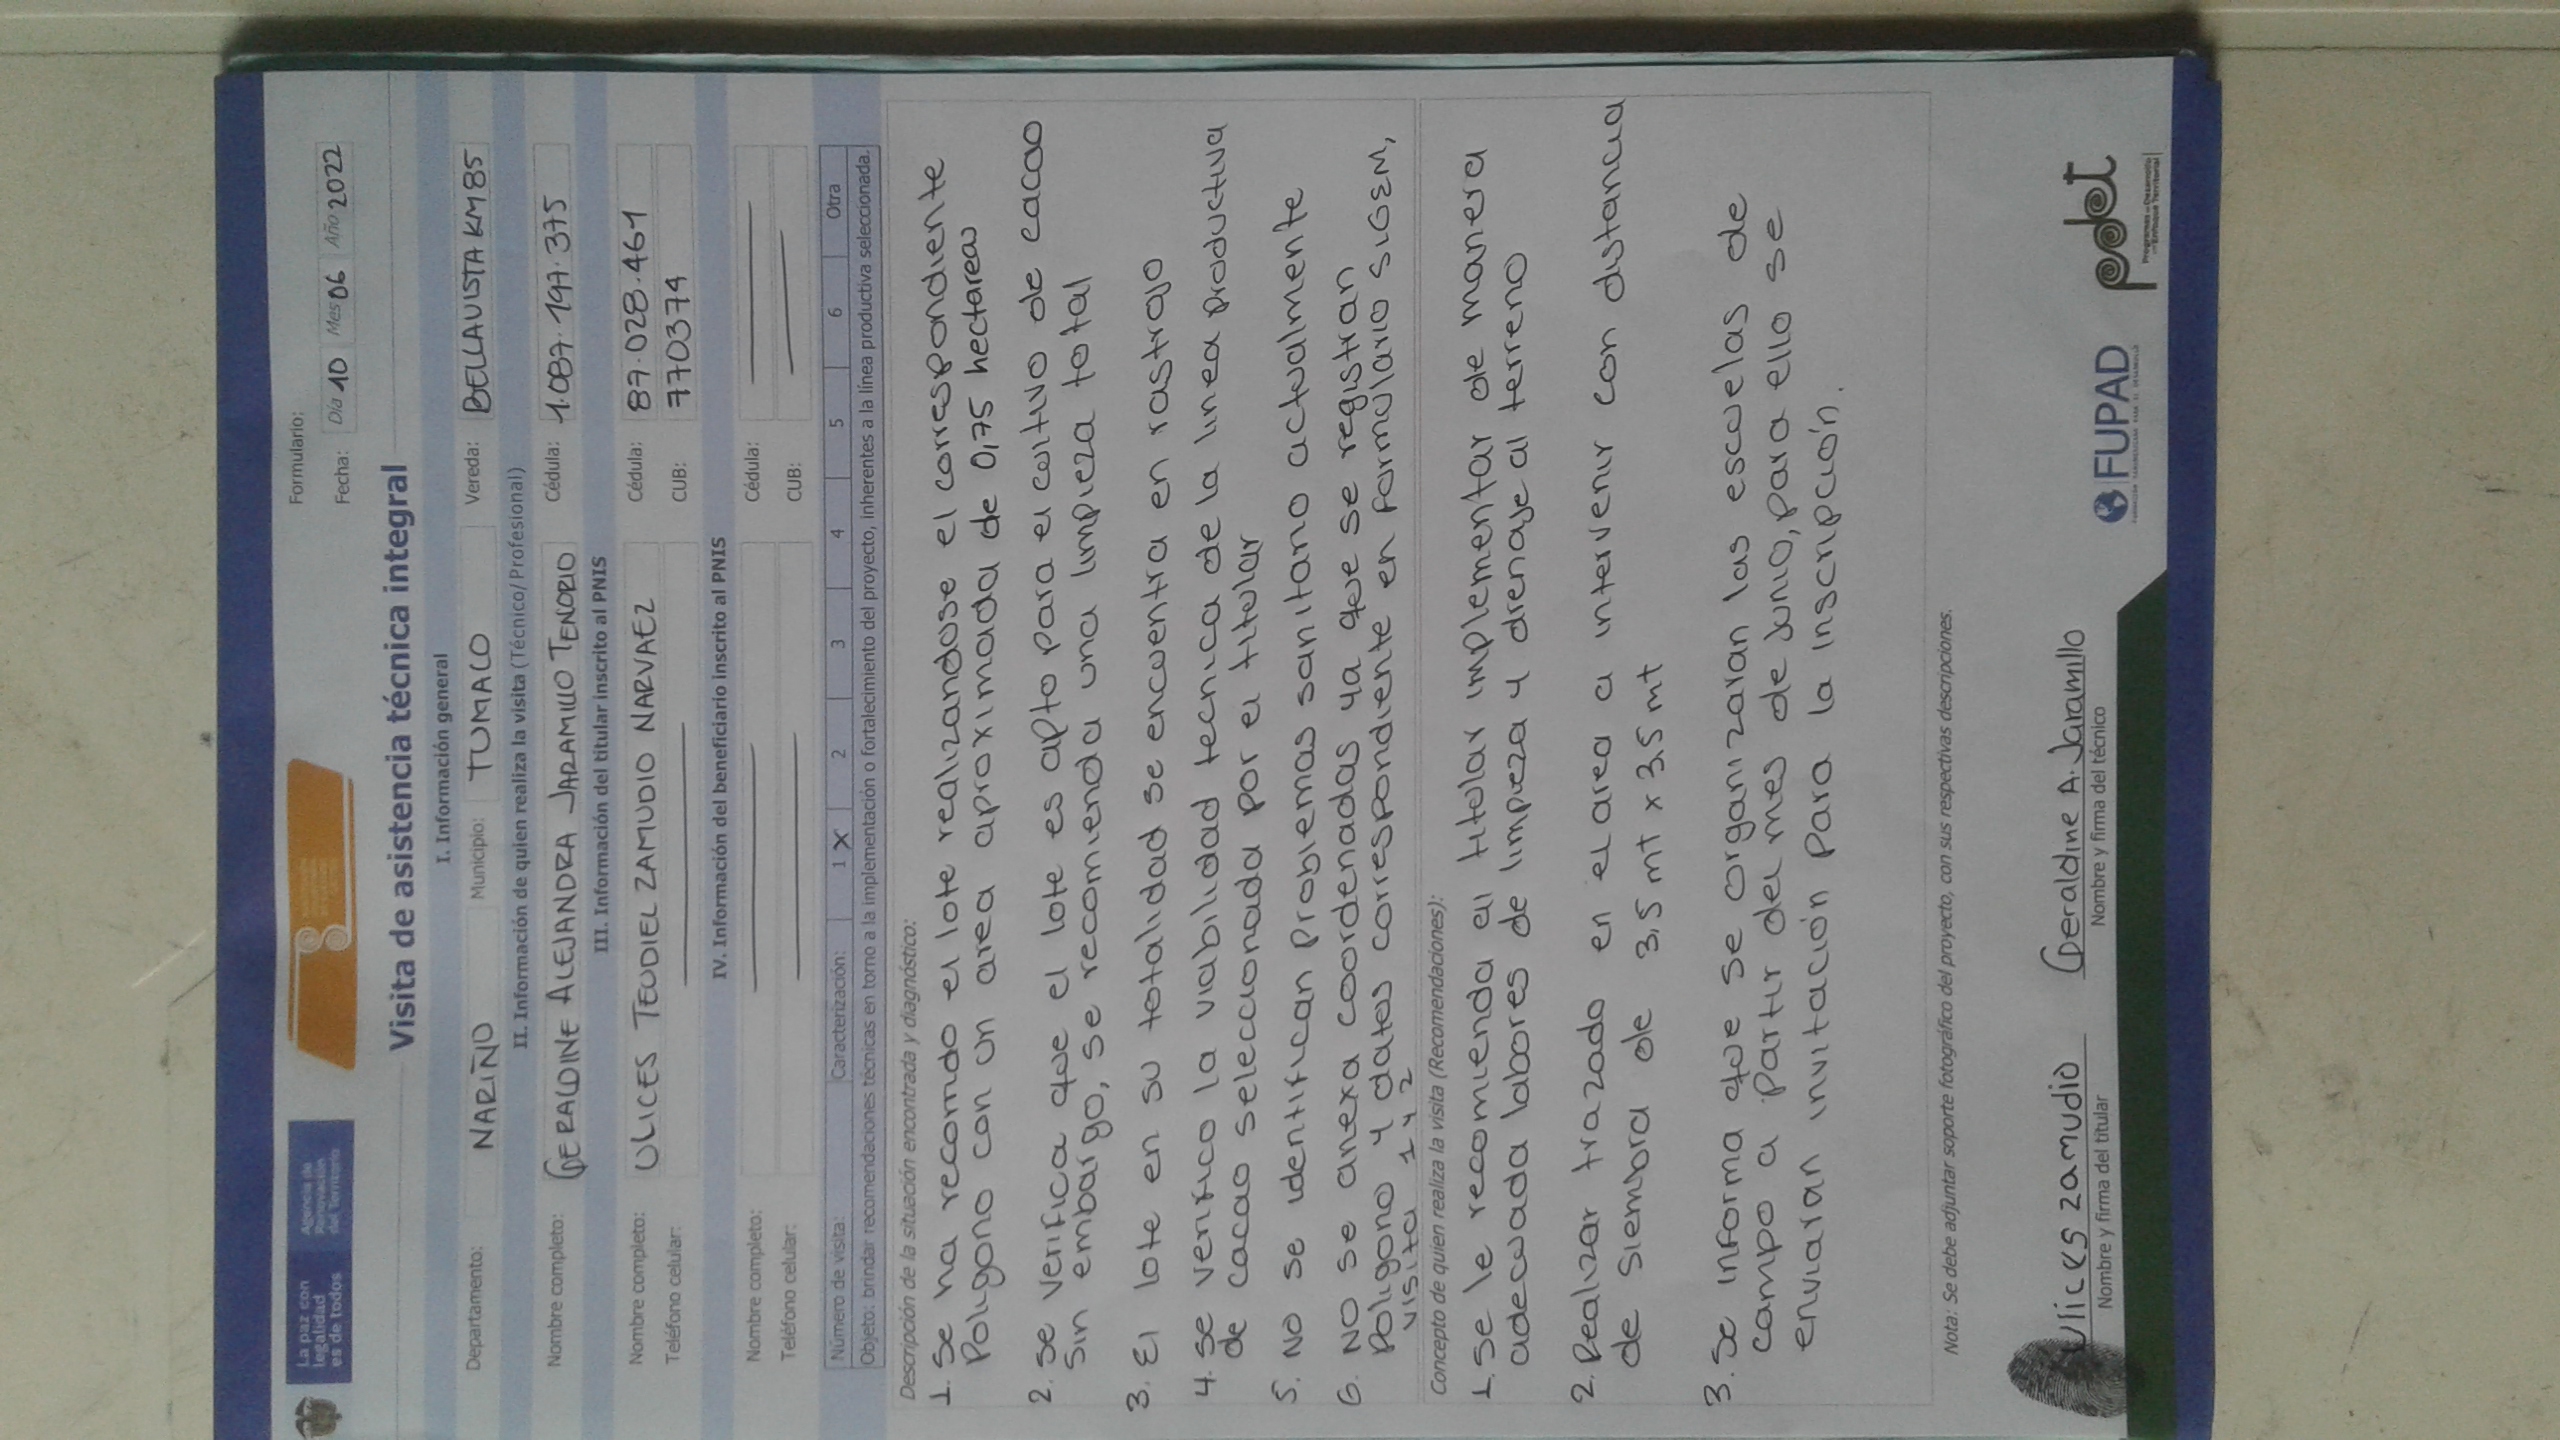 La paz con
legalidad
es de todos
Agencia de
Renovación
del Territorio
Formulario:
Fecha: Día 10 Mes 06 Año 2022
Visita de asistencia técnica integral
I. Información general
Departamento: NARIÑO Municipio: TUMACO Vereda: BELLAVISTA KM 85
II. Información de quien realiza la visita (Técnico/Profesional)
Nombre completo: GERALDINE ALEJANDRA JARAMILLO TENORIO Cédula: 1.087.197.375
III. Información del titular inscrito al PNIS
Nombre completo: ULICES TEUDIEL ZAMUDIO NARVAEZ Cédula: 87.028.461
Teléfono celular: CUB: 770374
IV. Información del beneficiario inscrito al PNIS
Nombre completo: Cédula:
Teléfono celular: CUB:
Número de visita: Caracterización: 1 X 2 3 4 5 6 Otra
Objeto: brindar recomendaciones técnicas en torno a la implementación o fortalecimiento del proyecto, inherentes a la línea productiva seleccionada.
Descripción de la situación encontrada y diagnóstico:
1. Se ha recorrido el lote realizandose el correspondiente
Poligono con un area aproximada de 0,75 hectareas
2. se verifica que el lote es apto para el cultivo de cacao
sin embargo, se recomienda una limpieza total
3. El lote en su totalidad se encuentra en rastrojo
4. se verifico la viabilidad tecnica de la linea productiva
de cacao seleccionada por el titular
5. NO se identifican problemas sanitario actualmente
6. NO se anexa coordenadas ya que se registran
poligono y datos correspondiente en formulario SIGEM,
visita 1 y 2
Concepto de quien realiza la visita (Recomendaciones):
1. se le recomienda al titular implementar de manera
adecuada labores de limpieza y drenaje al terreno
2. Realizar trazado en el area a intervenir con distancia
de siembra de 3,5 mt x 3,5 mt
3. Se informa que se organizaran las escuelas de
campo a partir del mes de Junio, para ello se
enviaran invitación para la inscripción.
Nota: Se debe adjuntar soporte fotográfico del proyecto, con sus respectivas descripciones.
Ulices zamudio
Nombre y firma del titular
Geraldine A. Jaramillo
Nombre y firma del técnico
FUPAD
pdet
Programas de Desarrollo
con Enfoque Territorial